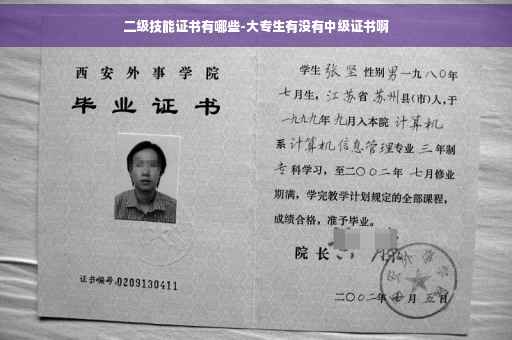 二级技能证书有哪些-大专生有没有中级证书啊
西安外事学院
毕业证书
证书编号:0209130411
学生 张坚 性别男 一九八〇年
七月生，江苏省 苏州县(市)人,于
一九九九年 九月入本院 计算机
系 计算机信息管理专业 三 年制
专 科学习，至二〇〇二年 七月修业
期满，学完教学计划规定的全部课程，
成绩合格，准予毕业。
院长
二〇〇二年 月 五日